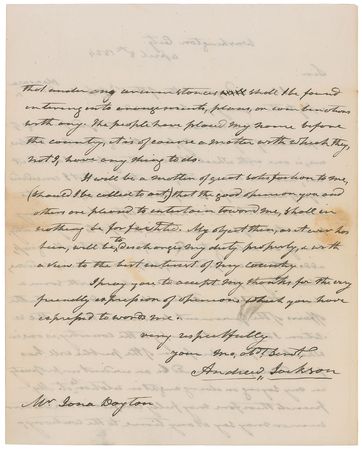 that under any circumstances shall I be found
entering into arrangements, plans, or combinations
with any. The people have placed my name before
the country, it is of course a matter with which they,
not I, have any thing to do.
It will be a matter of great satisfaction to me,
(should I be called to act) that the good opinion you and
others are pleased to entertain toward me, shall in
nothing be forfeited. My object then, as it ever has
been, will be, to discharge my duty properly, & with
a view to the best interest of my country.
I pray you to accept my thanks for the very
friendly expression of opinion which you have
expressed towards me.
very respectfully
your mo. obt. Servt,
Andrew Jackson
Mr. Jona Dayton